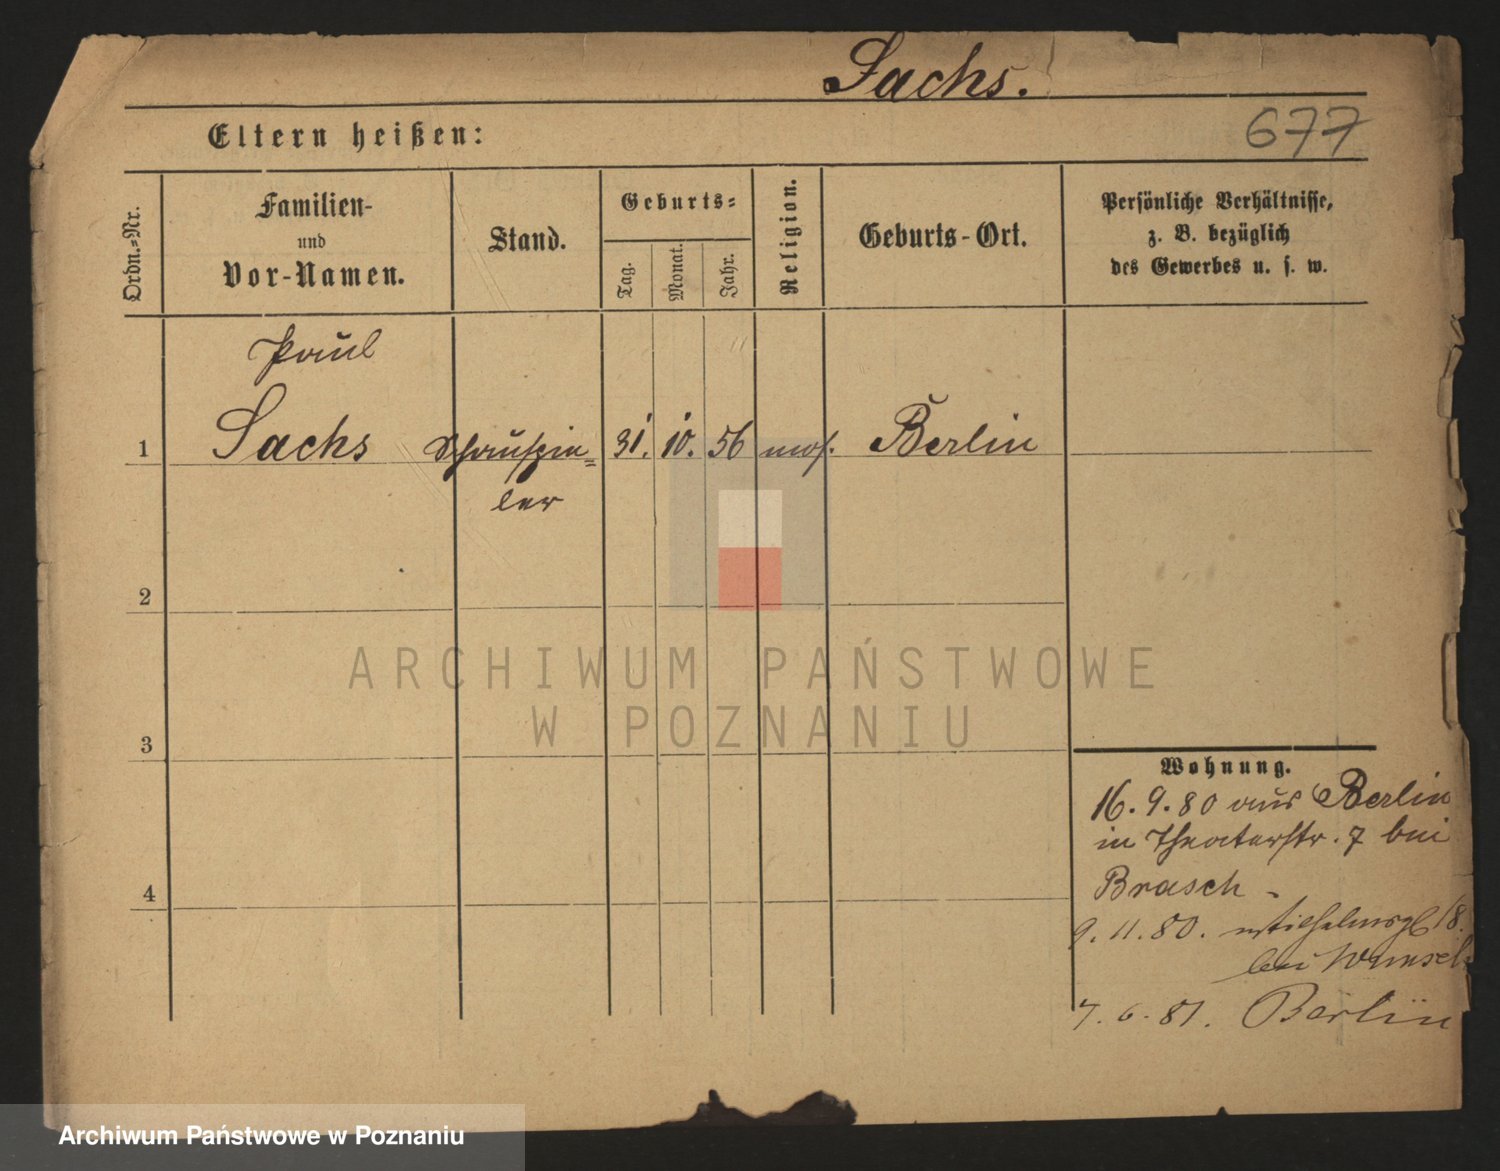 Sachs.
Eltern heißen:
677
Ordn.=Nr.
Familien-
und
Vor-Namen.
Stand.
Geburts=
Tag.
Monat.
Jahr.
Religion.
Geburts-Ort.
Persönliche Verhältnisse,
z. B. bezüglich
des Gewerbes u. s. w.
Paul
1 Sachs Schauspie= 31. 10. 56 mos. Berlin
ler
2
3
4
Wohnung.
16. 9. 80 aus Berlin
in Theaterstr. 7 bei
Brasch
9. 11. 80. Wilhelmspl 18.
bei
7. 6. 81. Berlin
ARCHIWUM PAŃSTWOWE
W POZNANIU
Archiwum Państwowe w Poznaniu